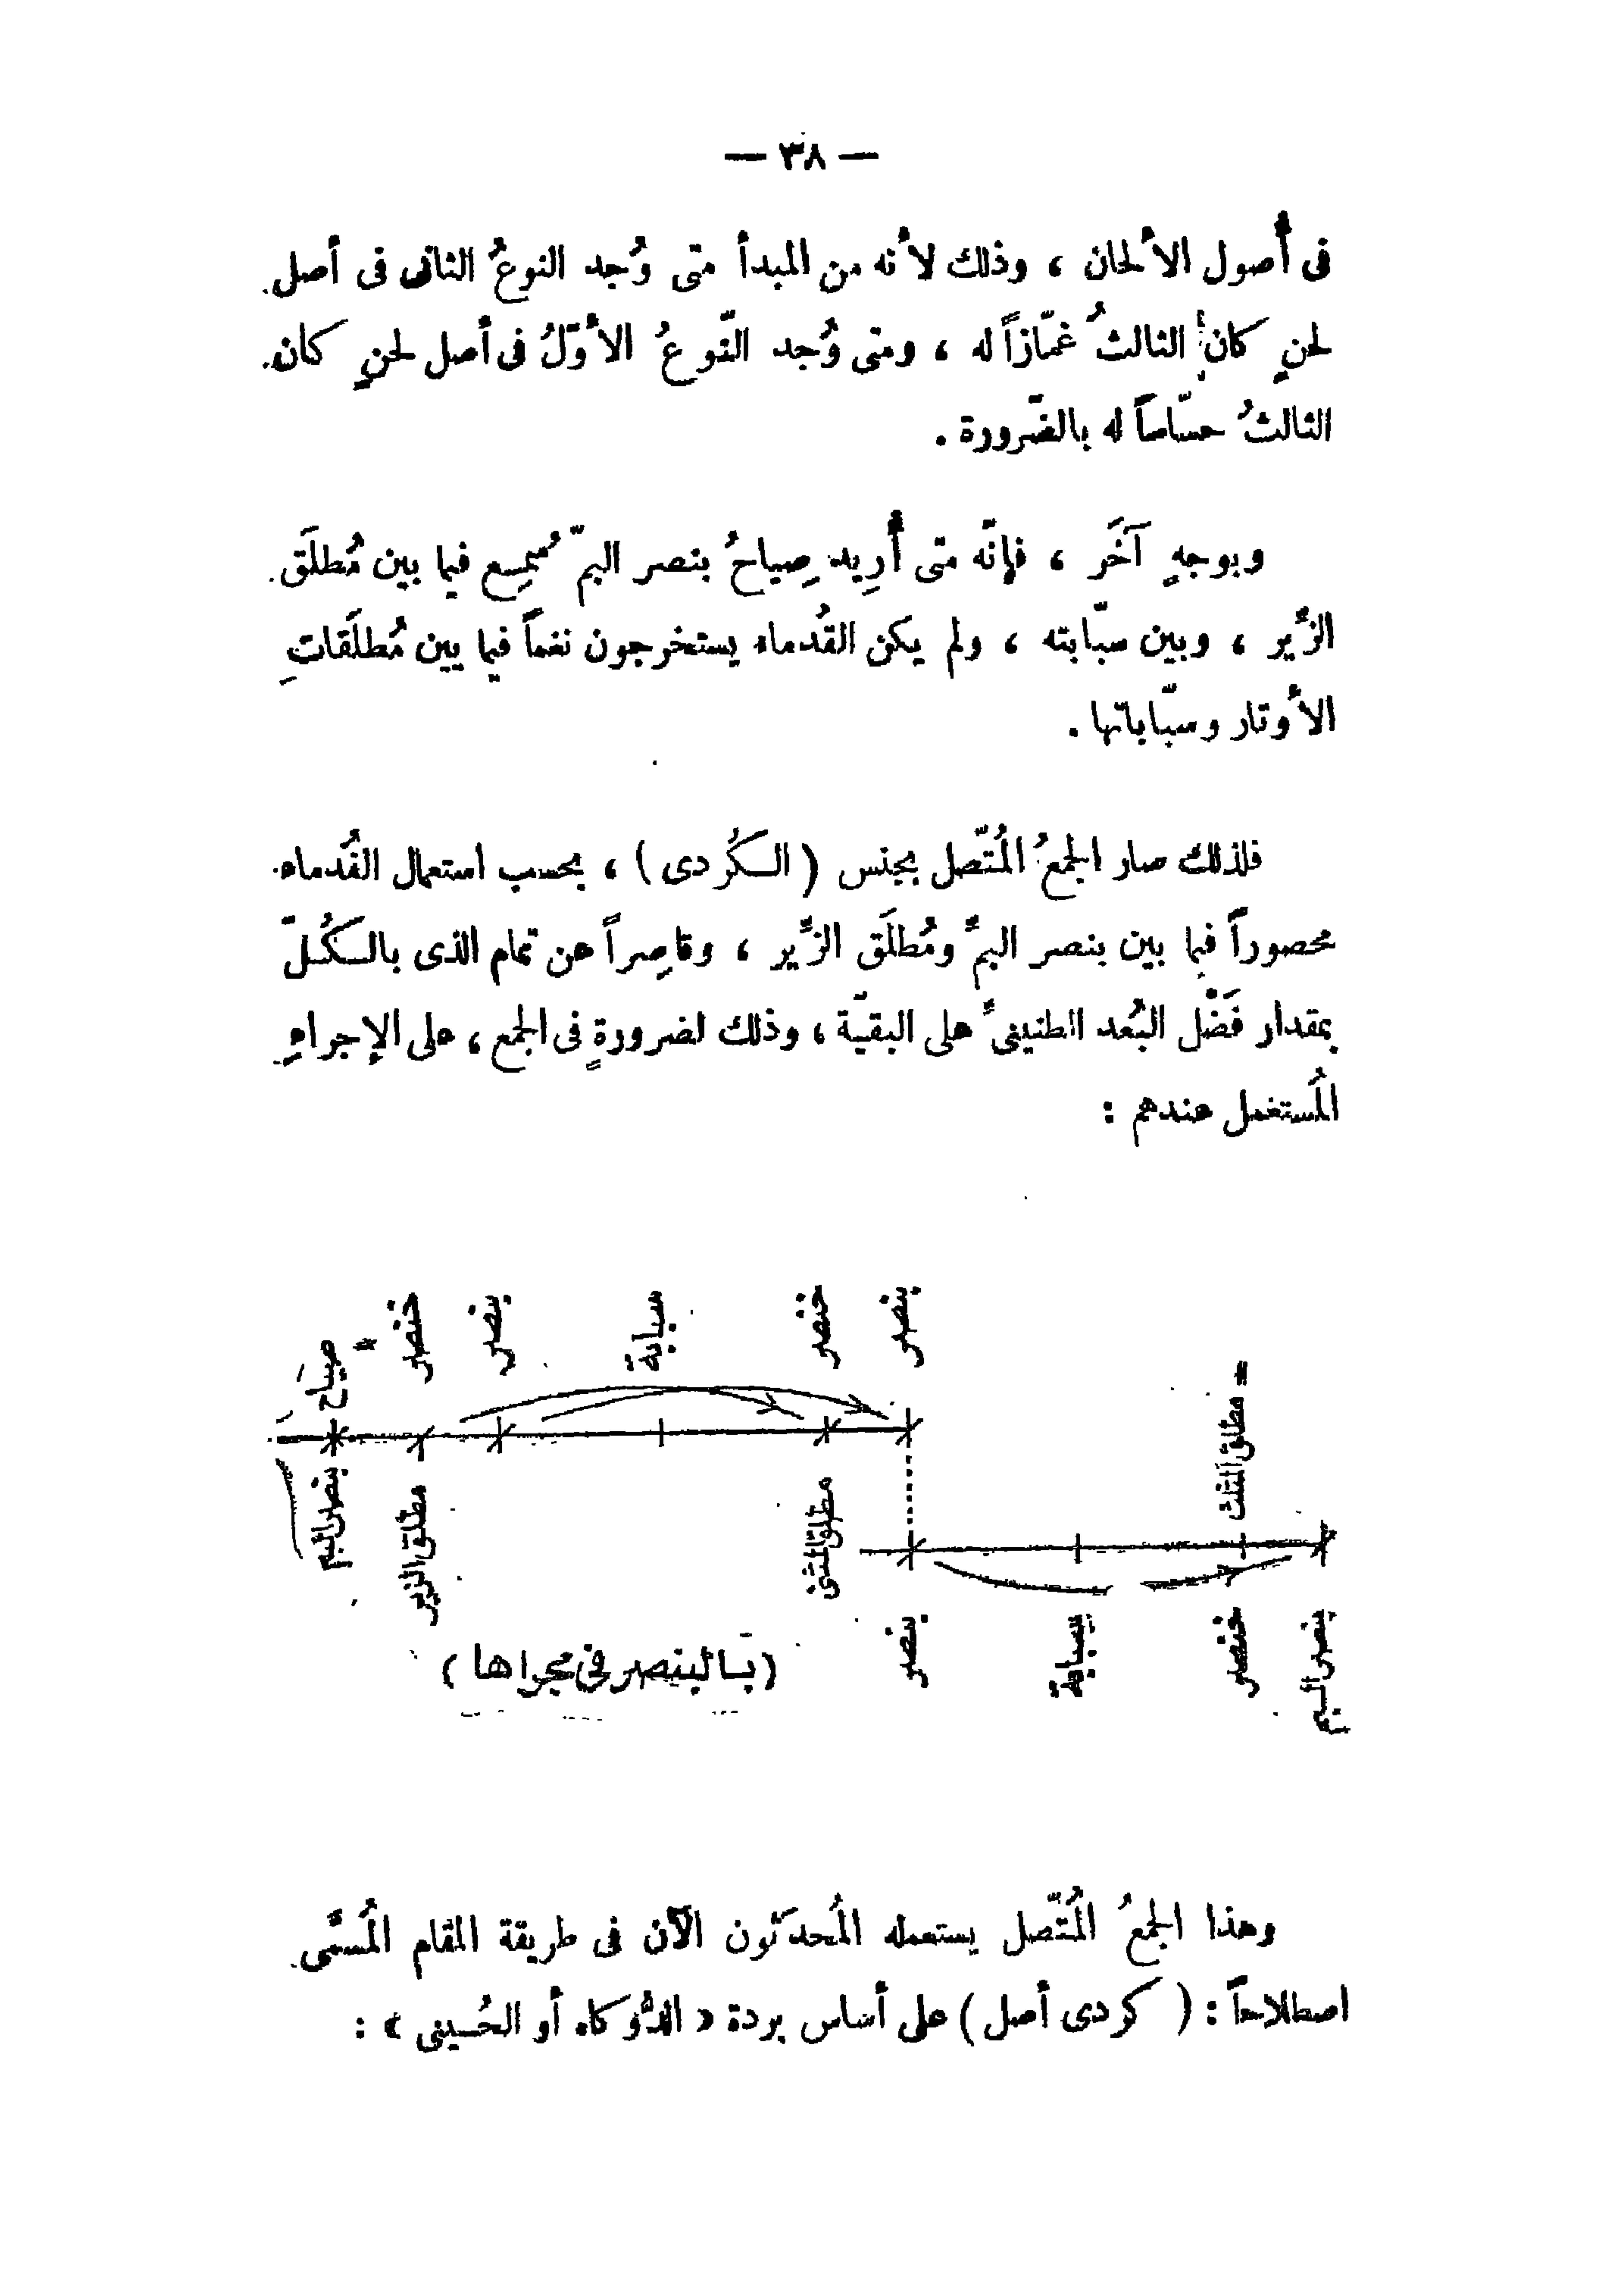 — ٣٨ —
فى أُصول الألحان ، وذلك لأنه من المبدأ متى وُجد النوعُ الثانى فى أصل
لحنٍ كان الثالثُ غمّازاً له ، ومتى وُجد النّوعُ الأوّلُ فى أصل لحنٍ كان
الثالثُ حسّاساً له بالضّرورة .
وبوجهٍ آخَر ، فإنّه متى أُرِيد صِياحُ بنصر البمّ سُمِع فيما بين مُطلَق
الزِّير ، وبين سبّابته ، ولم يكن القُدماء يستخرجون نغماً فيما بين مُطلَقاتِ
الأوتار وسبّاباتها .
فلذلك صار الجمعُ المُتّصل بجنس ( الكُردى ) ، بحسب استعمال القُدماء
محصوراً فيما بين بنصر البمِّ ومُطلَق الزِّير ، وقاصِراً عن تمام الذى بالكُلّ
بمقدار فَضْل البُعد الطنينىِّ على البقيّة ، وذلك لضرورةٍ فى الجمع ، على الإجراءِ
المُستعمل عندهم :
صياح خنصر بنصر سبابة خنصر بنصر
مطلق المثلث =
بنصر البم مطلق الزير مطلق المثنى
بنصر سبابة خنصر بنصر البم
( بالبنصر فى مجراها )
وهذا الجمعُ المُتّصل يستعمله المُحدَثون الآن فى طريقة المقام المُسمَّى
اصطلاحاً : ( كردى أصل ) على أساس بردة « الدُّوكاه أو الحُسينى » :